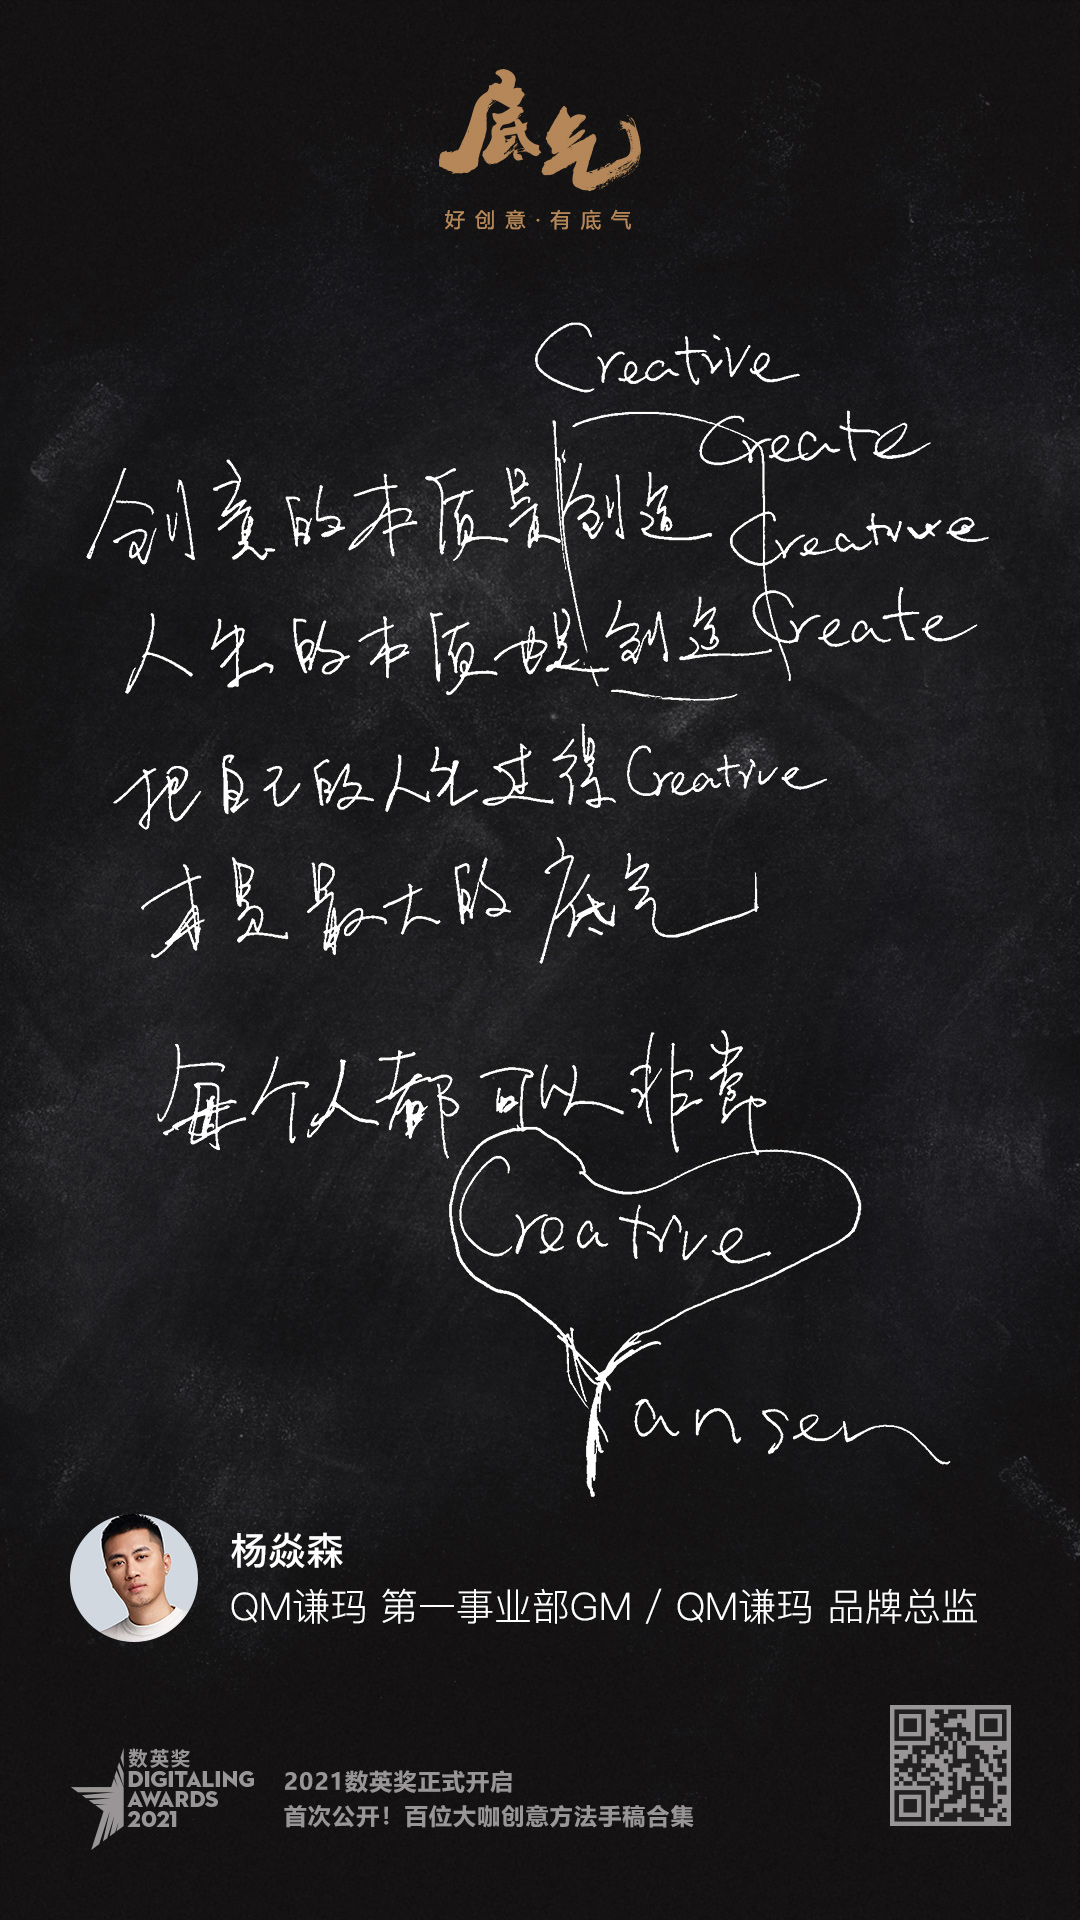 底气
好创意·有底气
Creative
Create
创意的本质是创造
Creative
人生的本质也是创造
Create
把自己的人生过得Creative
才是最大的底气
每个人都可以非常
Creative
Yansen
杨焱森
QM谦玛 第一事业部GM / QM谦玛 品牌总监
数英奖
DIGITALING
AWARDS
2021
2021数英奖正式开启
首次公开！百位大咖创意方法手稿合集